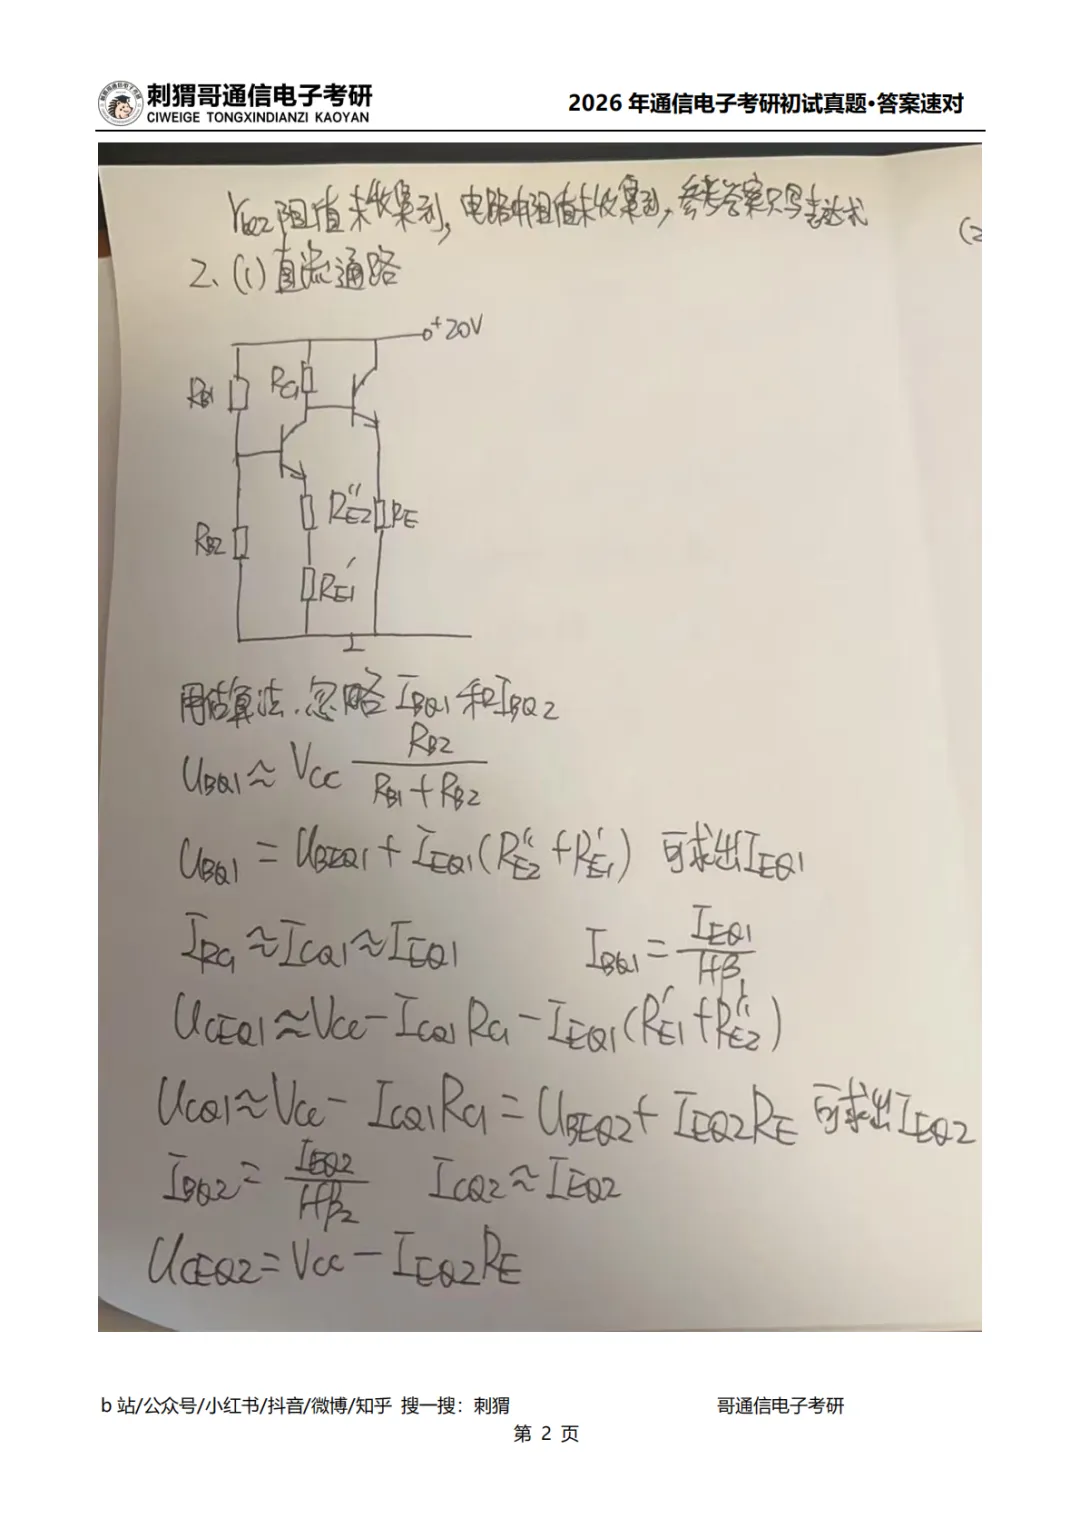 刺猬哥通信电子考研
CIWEIGE TONGXINDIANZI KAOYAN
2026 年通信电子考研初试真题·答案速对
阻值未收集到，电路中阻值未收集到，参考答案只写表达式
(2
2、(1) 直流通路
+20V
RB1
RC1
RE2''
RE
RB2
RE1'
用估算法，忽略 IBQ1 和 IBQ2
UBQ1 ≈ VCC RB2 / (RB1 + RB2)
UBQ1 = UBEQ1 + IEQ1 (RE2'' + RE1') 可求出 IEQ1
IRC1 ≈ ICQ1 ≈ IEQ1 IBQ1 = IEQ1 / (1+β1)
UCEQ1 ≈ VCC - ICQ1 RC1 - IEQ1 (RE1' + RE2'')
UCQ1 ≈ VCC - ICQ1 RC1 = UBEQ2 + IEQ2 RE 可求出 IEQ2
IBQ2 = IEQ2 / (1+β2) ICQ2 ≈ IEQ2
UCEQ2 = VCC - IEQ2 RE
b 站/公众号/小红书/抖音/微博/知乎 搜一搜：刺猬
哥通信电子考研
第 2 页